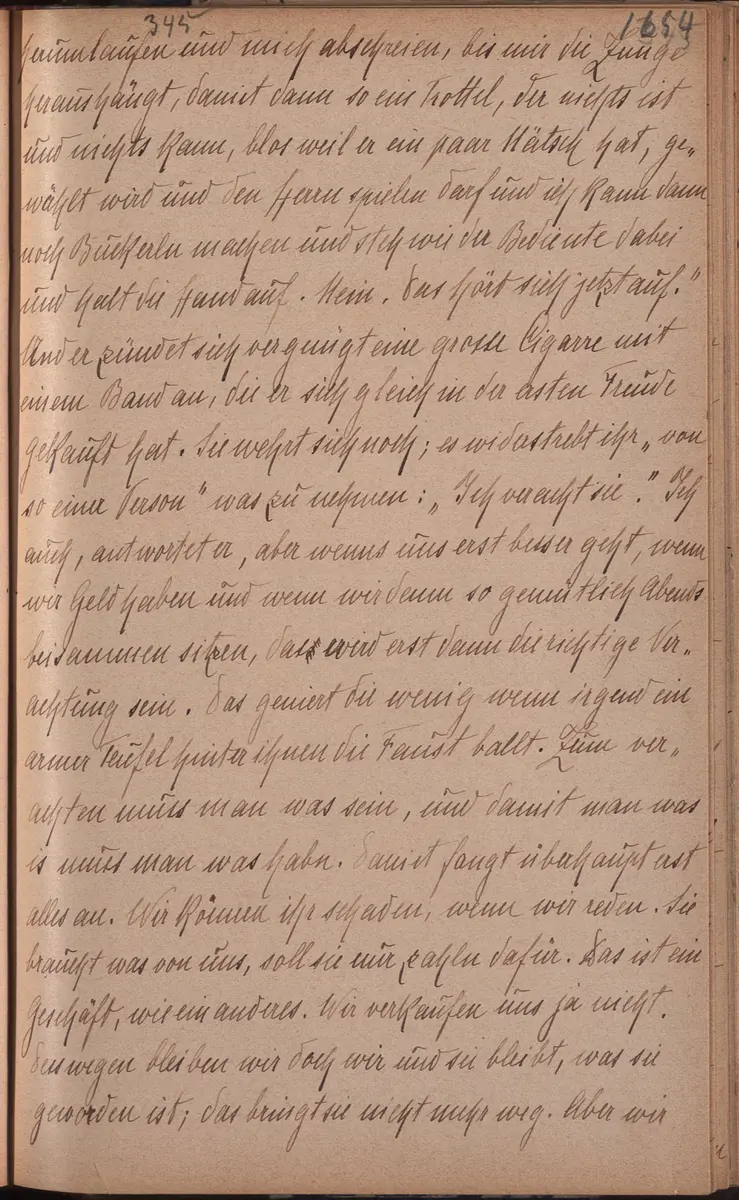 345 1654
herumlaufen und mich abschreien, bis mir die Zunge
heraushängt, damit dann so ein Trottel, der nichts ist
und nichts kann, blos weil er ein paar Hätsch hat, ge„
wählt wird und den Herrn spielen darf und ich kann dann
noch Buckerln machen und steh wie der Bediente dabei
und halt die Hand auf. Nein. Das hört sich jetzt auf."
Und er zündet sich vergnügt eine grosse Cigarre mit
einem Band an, die er sich gleich in der ersten Freude
gekauft hat. Sie wehrt sich noch; es widerstrebt ihr „von
so einer Person" was zu nehmen: „Ich veracht sie." Ich
auch, antwortet er, aber wenns uns erst besser geht, wenn
wir Geld haben und wenn wir dann so gemütlich Abends
beisammen sitzen, das wird erst dann die richtige Ver„
achtung sein. Das geniert die wenig wenn irgend ein
armer Teufel hinter ihnen die Faust ballt. Zum ver„
achten muss man was sein, und damit man was
is muss man was habn. Damit fangt überhaupt erst
alles an. Wir können ihr schaden, wenn wir reden. Sie
braucht was von uns, soll sie nur zahln dafür. Das ist ein
Geschäft, wie ein anderes. Wir verkaufen uns ja nicht.
Deswegen bleiben wir doch wir und sie bleibt, was sie
geworden ist; das bringt sie nicht mehr weg. Aber wir